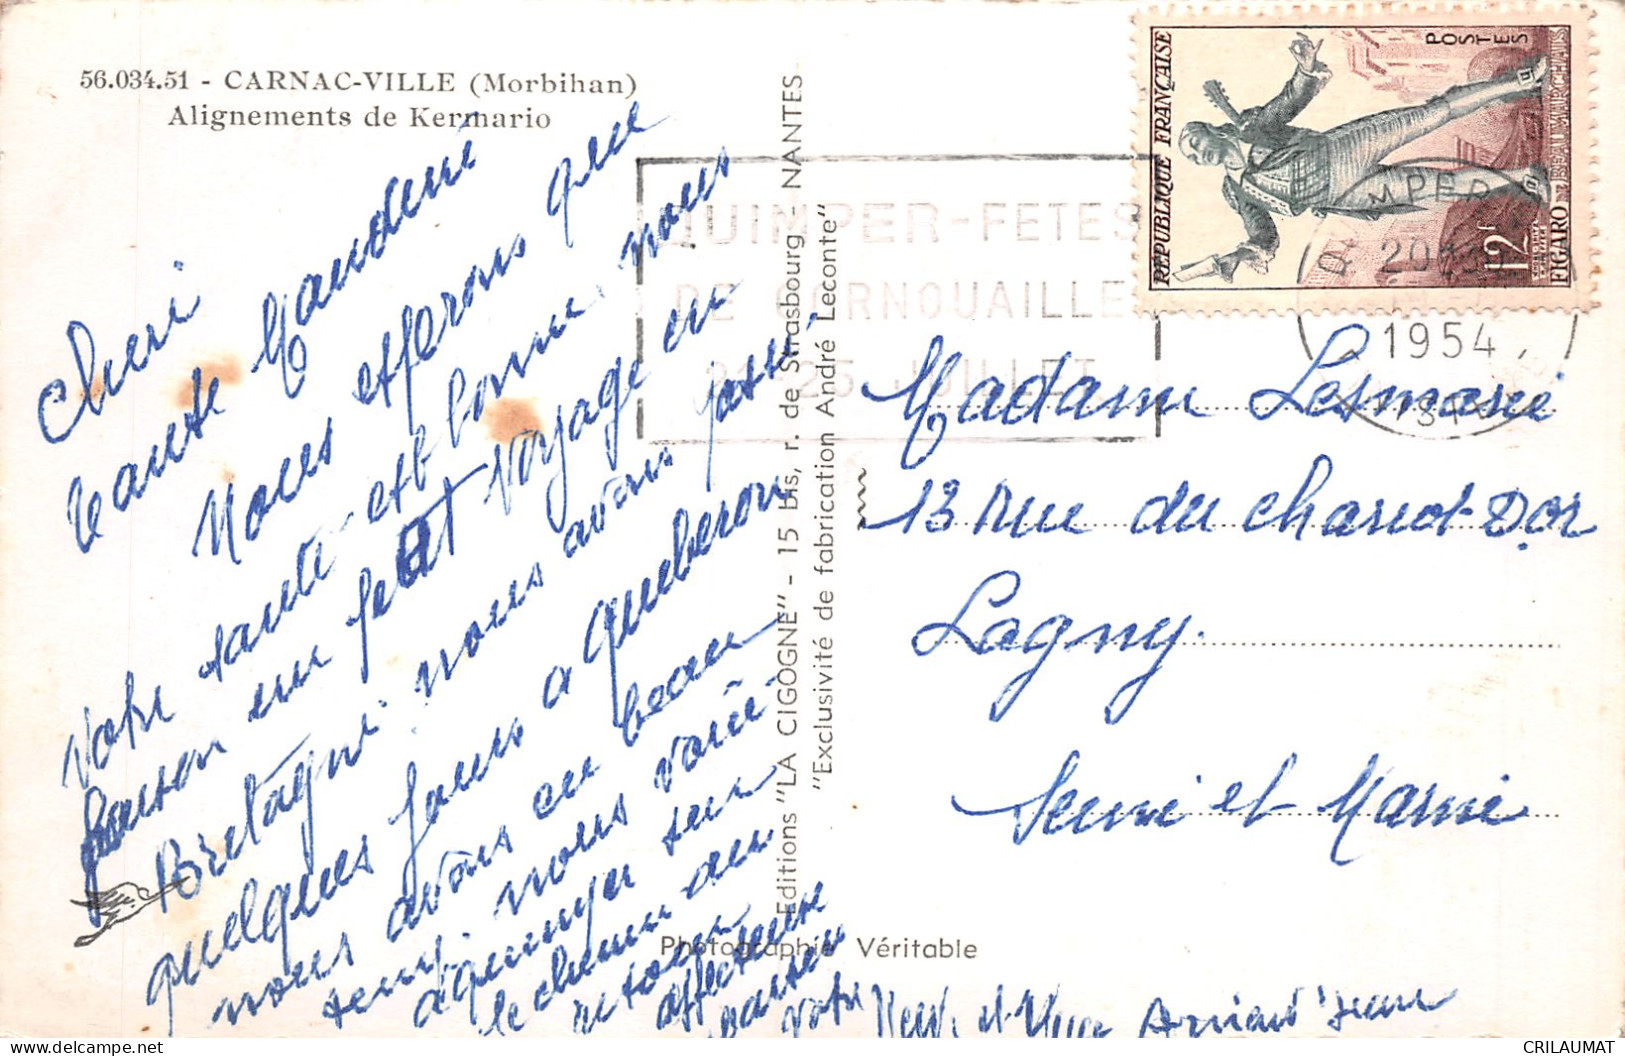 56.034.51 - CARNAC-VILLE (Morbihan)
Alignements de Kermario
Cheri
tante Maudeni
Nous esperons que
Votre santé est bonne, nous
faison un petit voyage en
Bretagne nous avons passé
quelques Jours a Queberon
nous avons eu beau
temp. nous
le chemin du
retour
affectueuse
Votre Neve et Niece Armand Jean
Editions "LA CIGOGNE" - 15 bis, r. de Strasbourg - NANTES
"Exclusivité de fabrication André Leconte"
Photographie Véritable
QUIMPER-FETES
DE CORNOUAILLE
21-25 JUILLET
QUIMPER
20
1954
REPUBLIQUE FRANÇAISE
POSTES
BEAUMARCHAIS
12F
FIGARO
Madame Lesmarie
13 Rue du chariot-D'or
Lagny.
Seine et-Marne
CRILAUMAT